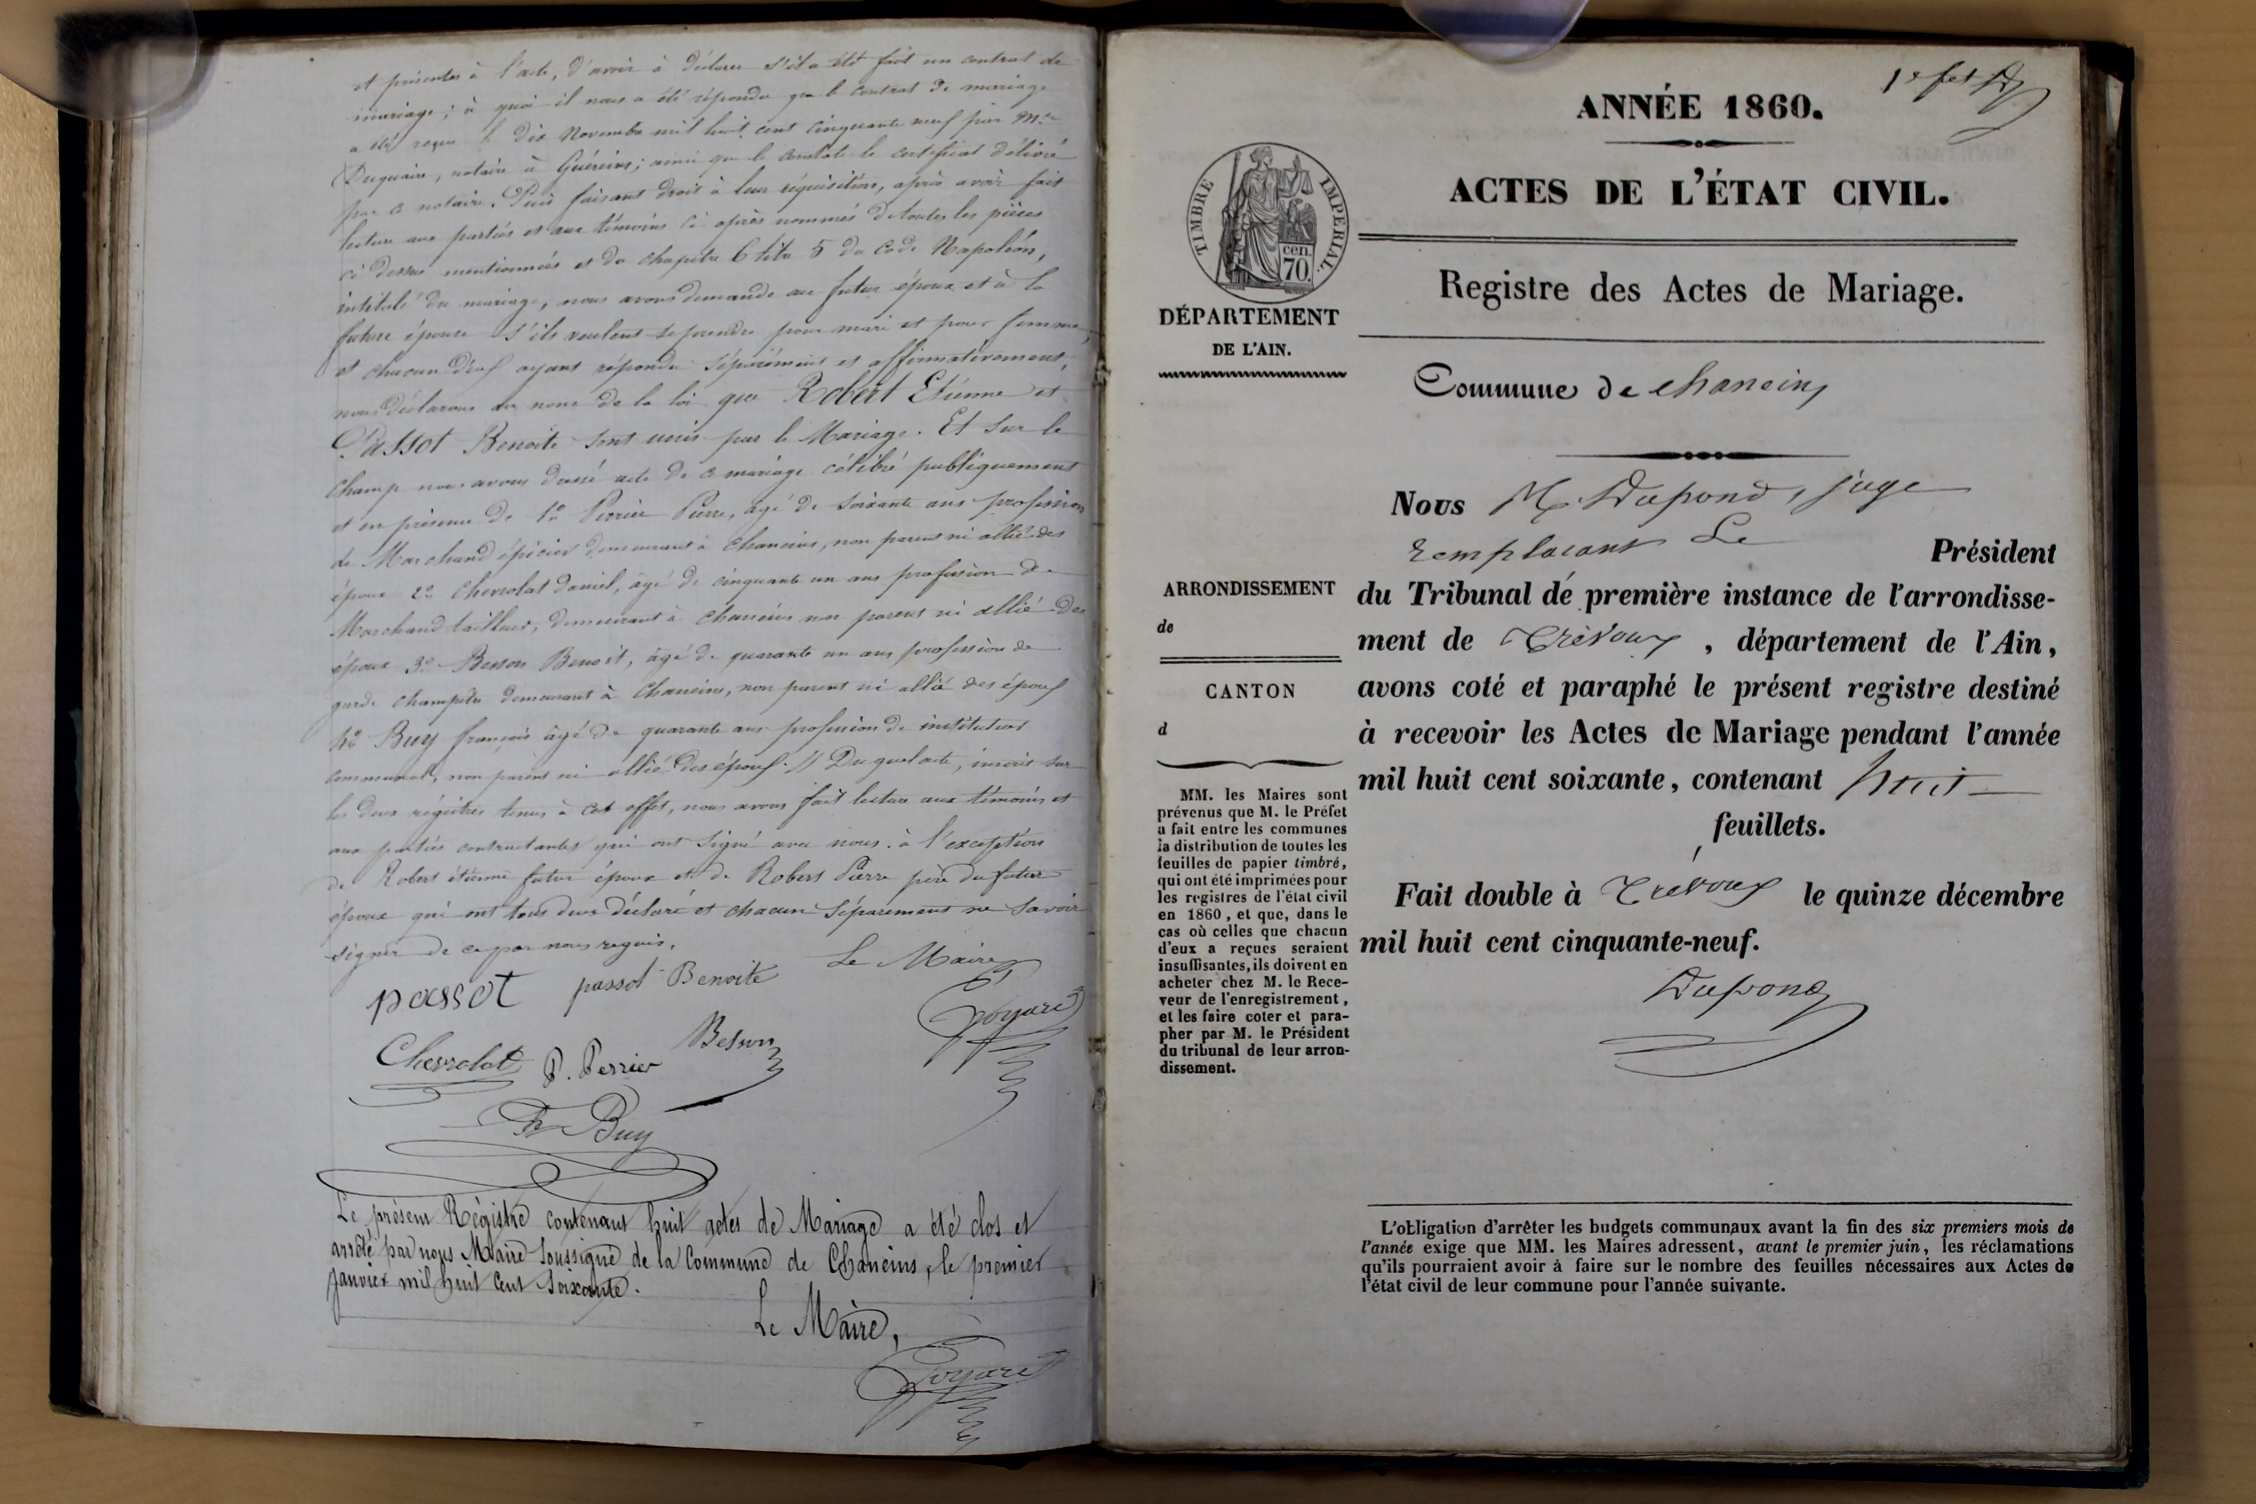 et présentes à l'acte, d'avoir à déclarer s'il a été fait un contrat de
mariage; à quoi il nous a été répondu que le contrat de mariage
a été reçu le dix Novembre mil huit cent cinquante neuf par Me
notaire à Guéreins; ainsi que le constate le certificat délivré
par ce notaire. Puis faisant droit à leur réquisition, après avoir fait
lecture aux parties et aux témoins ci après nommés de toutes les pièces
ci dessus mentionnées et du chapitre 6 titre 5 du Code Napoléon,
intitulé du mariage, nous avons demandé au futur époux et à la
future épouse s'ils veulent se prendre pour mari et pour femme,
et chacun d'eux ayant répondu séparément et affirmativement,
nous déclarons au nom de la loi que Robert Etienne et
Passot Benoite sont unis par le Mariage. Et sur le
champ nous avons dressé acte de ce mariage célébré publiquement
et en présence de 1º Perrier Pierre, âgé de soixante ans profession
de Marchand épicier demeurant à Chaneins, non parent ni allié des
époux 2º Chevrolat daniel, âgé de cinquante un ans profession de
Marchand tailleur, demeurant à Chaneins non parent ni allié des
époux 3º Besson Benoit, âgé de quarante un ans profession de
garde champêtre demeurant à Chaneins, non parent ni allié des époux
4º Buy françois âgé de quarante ans profession de instituteur
communal, non parent ni allié des époux. // Du quel acte, inscrit sur
les deux régistres tenus à cet effet, nous avons fait lecture aux témoins et
aux parties contractantes qui ont signé avec nous. à l'exception
de Robert étienne futur époux et de Robert Pierre père du futur
époux qui ont tous deux déclaré et chacun séparement ne savoir
signer de ce par nous requis.
Le Maire
passot passot Benoite
Goyard
Chevrolat P. Perrier Besson
Fr Buy
Le présent Régistre contenant huit actes de Mariage a été clos et
arrêté par nous Maire soussigné de la Commune de Chaneins, le premier
Janvier mil huit cent soixante.
Le Maire,
Goyard
ANNÉE 1860.
ACTES DE L'ÉTAT CIVIL.
TIMBRE IMPERIAL.
cen.
70.
DÉPARTEMENT
DE L'AIN.
Registre des Actes de Mariage.
Commune de Chaneins
Nous M Dupond, juge
remplacant Le Président
du Tribunal dé première instance de l'arrondisse-
ment de Trévoux, département de l'Ain,
avons coté et paraphé le présent registre destiné
à recevoir les Actes de Mariage pendant l'année
mil huit cent soixante, contenant huit
feuillets.
Fait double à Trévoux le quinze décembre
mil huit cent cinquante-neuf.
Dupond
ARRONDISSEMENT
de
CANTON
d
MM. les Maires sont
prévenus que M. le Préfet
a fait entre les communes
la distribution de toutes les
feuilles de papier timbré,
qui ont été imprimées pour
les registres de l'état civil
en 1860, et que, dans le
cas où celles que chacun
d'eux a reçues seraient
insuffisantes, ils doivent en
acheter chez M. le Rece-
veur de l'enregistrement,
et les faire coter et para-
pher par M. le Président
du tribunal de leur arron-
dissement.
L'obligation d'arrêter les budgets communaux avant la fin des six premiers mois de
l'année exige que MM. les Maires adressent, avant le premier juin, les réclamations
qu'ils pourraient avoir à faire sur le nombre des feuilles nécessaires aux Actes de
l'état civil de leur commune pour l'année suivante.